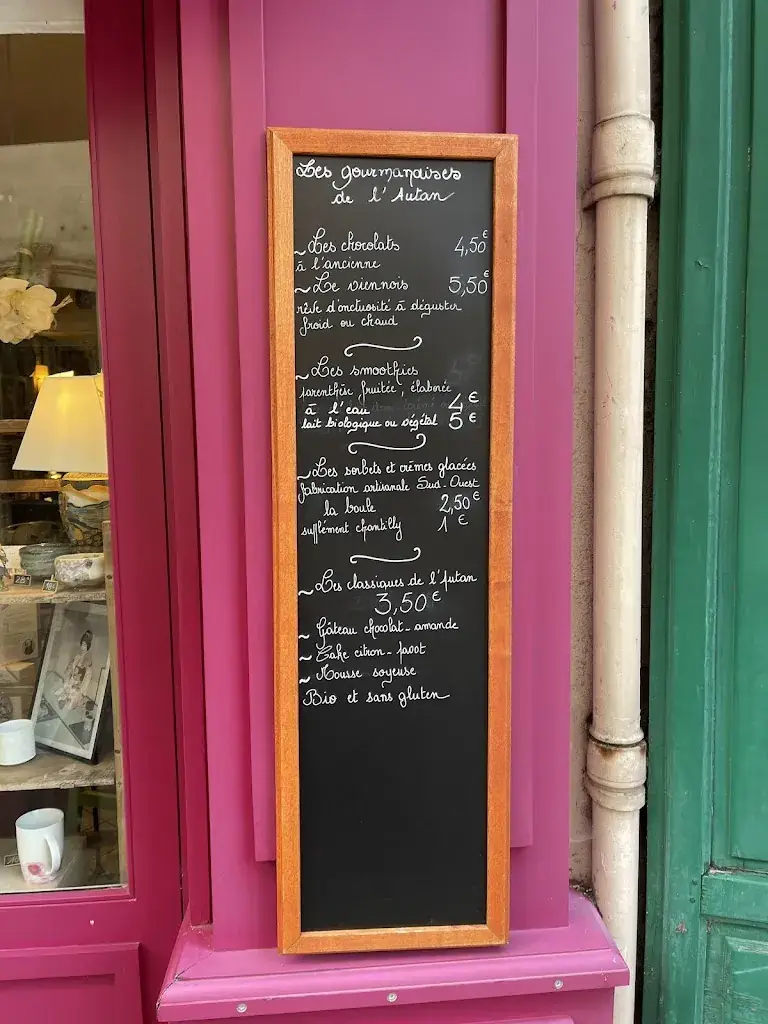 Les gourmandises
de l'Autan
~ Les chocolats 4,50€
à l'ancienne
~ Le viennois 5,50€
rêve d'onctuosité à déguster
froid ou chaud
~ Les smoothies
parenthèse fruitée, élaborée
à l'eau 4€
lait biologique ou végétal 5€
~ Les sorbets et crèmes glacées
fabrication artisanale Sud-Ouest
la boule 2,50€
supplément chantilly 1€
~ Les classiques de l'Autan
3,50€
~ Gâteau chocolat-amande
~ Cake citron-pavot
~ Mousse soyeuse
Bio et sans gluten